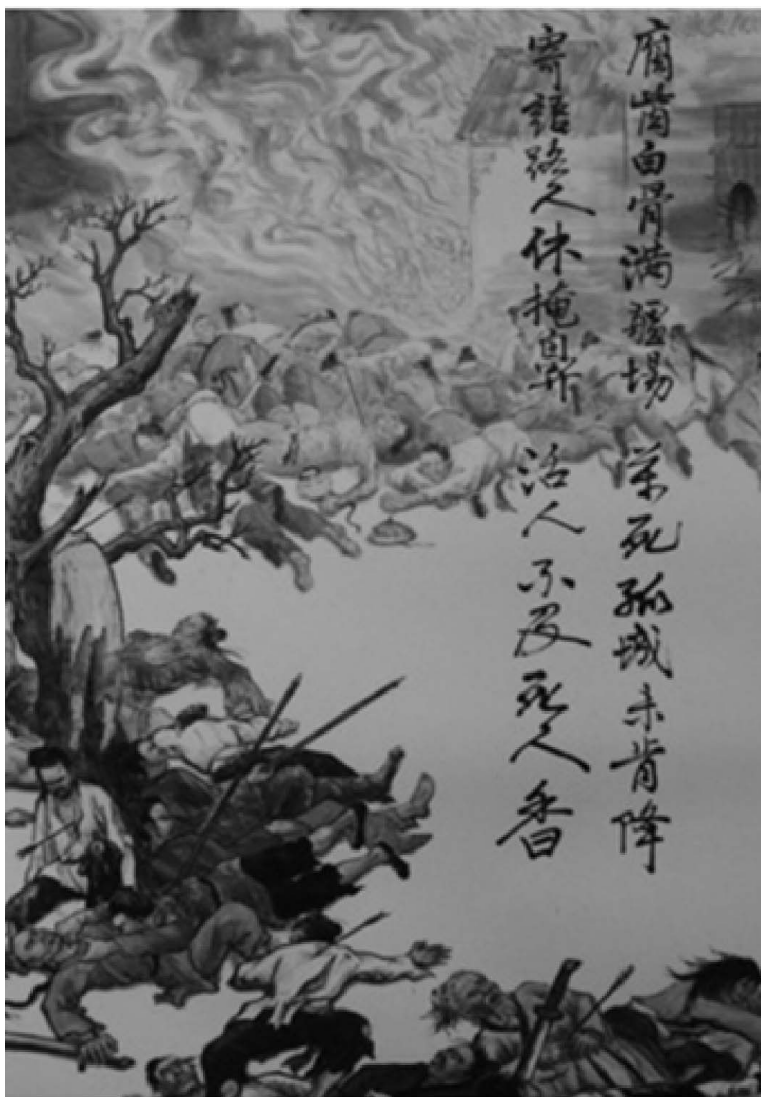 腐胔白骨满疆場 萬死孤城未肯降
寄語路人休掩鼻 活人不及死人香